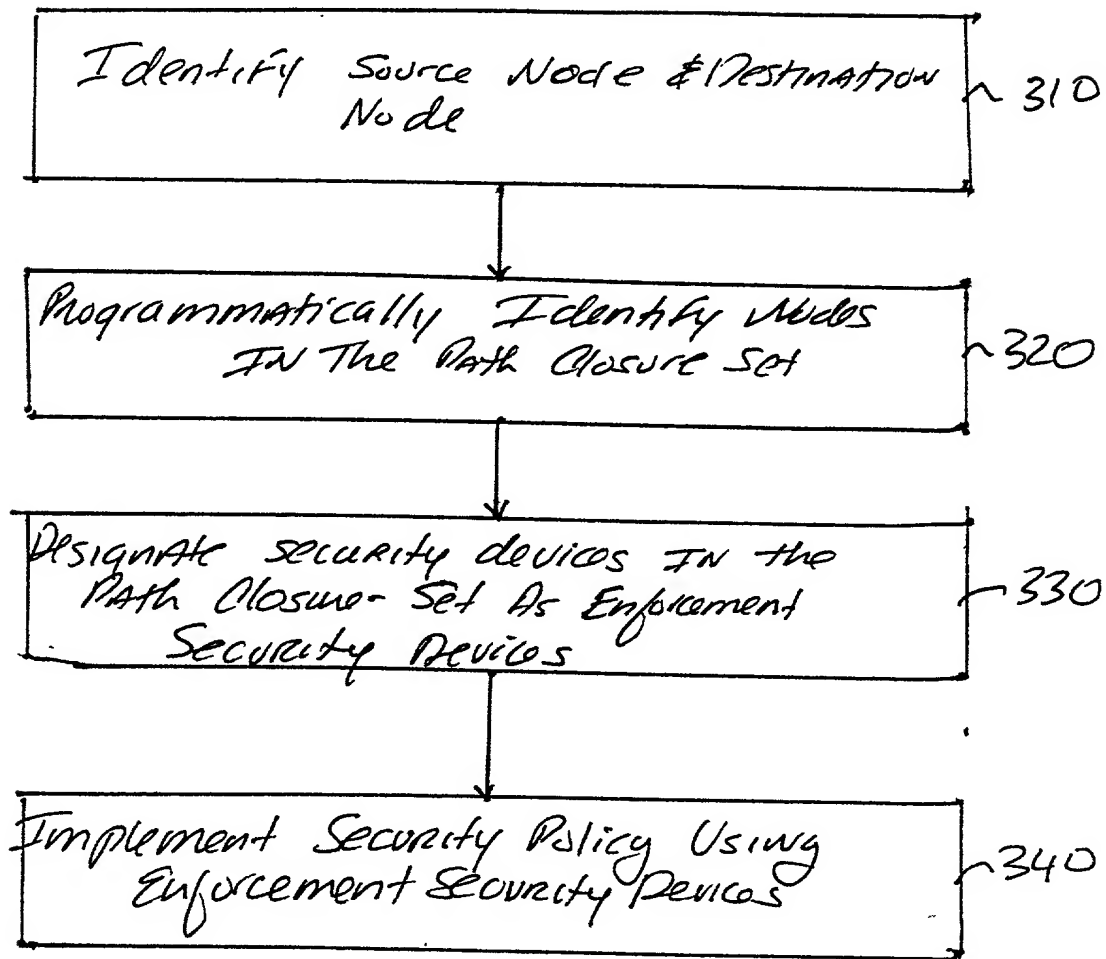 Identify Source Node & Destination
Node
310
Programmatically Identify Nodes
IN The Path Closure Set
320
Designate security devices IN the
Path Closure Set As Enforcement
Security Devices
330
Implement Security Policy Using
Enforcement Security Devices
340